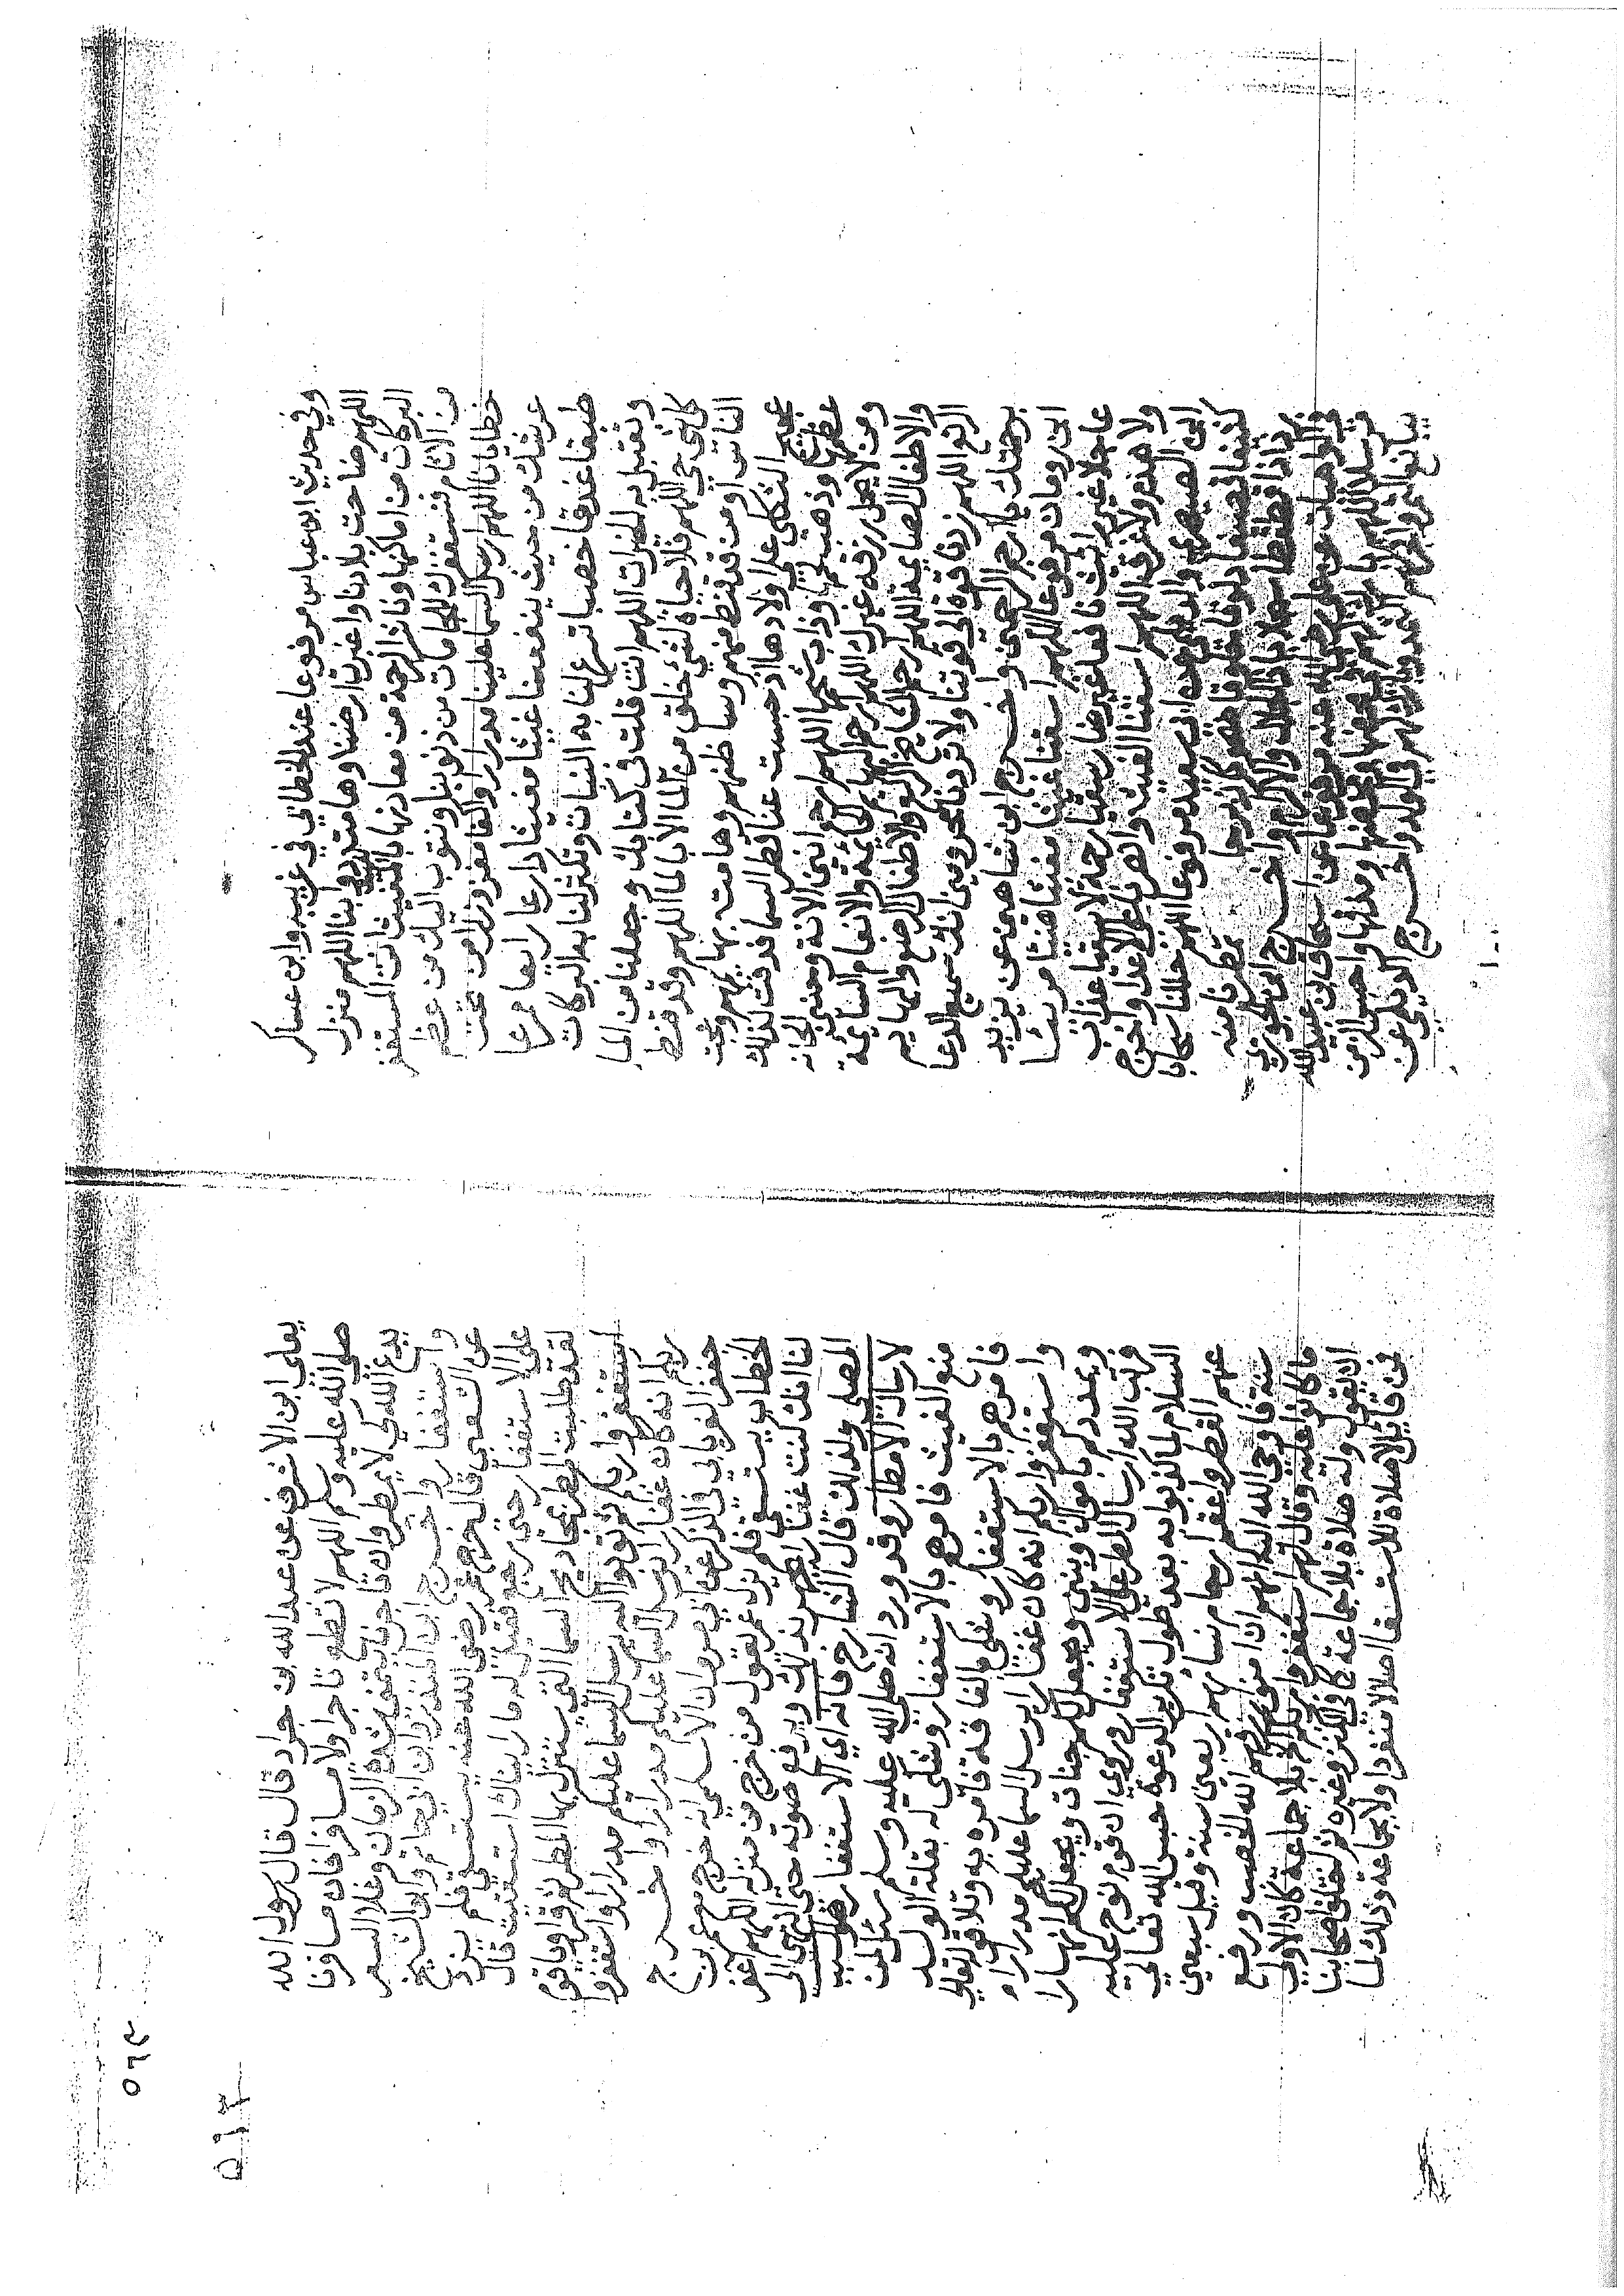 وفي حديث ابن عباس مرفوعا عند الخطابي في غريبه وابن عساكر
اللهم ضاحت بلادنا واغبرت ارضنا وهامت دوابنا اللهم منزل
البركات من اماكنها وناشر الرحمة من معادنها بالغيث انت المستغفر
من الاثام فنستغفرك للجامات من ذنوبنا ونتوب اليك من عظم
خطايانا اللهم ارسل السما علينا مدرارا واكفا مغزورا من تحت
عرشك من حيث ينفعنا غيثا مغيثا دارعا رايعا مرعا
طبقا غدقا خصبا تسرع لنا به النبات وتكثر لنا به البركات
وتقبل به الخيرات اللهم انت قلت في كتابك وجعلنا من الما
كل شي حي اللهم فلا حياة لشي خلق من الما الا بالما اللهم وقد قنط
الناس او من قد قنط منهم وسا ظنهم وهامت بهايمهم وعجت
عجيج الثكلى على اولادها اذ حبست عنا قطر السما فدقت لذلك
عظمها وذهب لحمها وذاب شحمها اللهم ارحم انين الانة وحنين الحانة
ومن لا يحمل رزقه غيرك اللهم ارحم البهايم الحائمة والانعام السايمة
والاطفال الصايمة اللهم ارحم المشايخ الركع والاطفال الرضع والبهايم
الرتع اللهم زدنا قوة الي قوتنا ولا تردنا محرومين انك سميع الدعا
برحمتك يا ارحم الراحمين واخرج ابن شاهين عن يزيد
ابن رومان مرفوعا اللهم اسقنا غيثا مغيثا هنيئا مريئا
عاجلا غير رايث نافعا غير ضار سقيا رحمة لا سقيا عذاب
ولا هدم ولا غرق اللهم اسقنا الغيث وانصرنا علي الاعدا واخرج
ابن والديلمي عن ابي سعيد مرفوعا اللهم جللنا سحابا
كثيفا قصيفا دلوقا ضحوكا زبرجا تمطرنا منه
رذاذا قطقطا سجلا يا ذا الجلال والاكرام واخرج ابن الجوزي
في الواهيات عن علي رضي الله عنه مرفوعا عن اسحاق بن عبيد الله
مرسلا اللهم بارك لهم في محضها ومخضها ومذقها واحبس الزمن
بيانع الثمر وافجر لهم الثمد وبارك لهم في الولد واخرج الديلمي عن
٥٦٩
٥١٢
يعلي ابن الاشرف عن عبد الله بن جراد قال قال رسول الله
صلي الله عليه وسلم اللهم لا تطع تاجرا ولا مسافرا فان مسافرنا
يدع الله كي لا يمطر وان تاجرنا يتمني شدة الزمان وغلا السعر
واستغفار واخرج ابن المنذر وابن ابي حاتم وابو الشيخ
عن الشعبي قال خرج عمر رضي الله عنه يستسقي فلم يزد
علي الاستغفار حتي رجع فقيل له ما رايناك استسقيت قال
لقد طلبت المطر بمجاديح السما التي يستنزل بها المطر ثم قرا ويا قوم
استغفروا ربكم ثم توبوا اليه يرسل السما عليكم مدرارا واستغفروا
ربكم انه كان غفارا يرسل السما عليكم مدرارا واخرج
جعفر الفريابي في الذكر عن ابي مروان الاسلمي انه خرج مع عمر بن
الخطاب يستسقي فلم يزل عمر يقول من خرج من منزله اللهم اغفر
لنا انك كنت غفارا يجهر بذلك ويرفع صوته حتي انتهي الي
المصلي ولذلك قال الشارح فانه اي الاستغفار
لارسال الامطار وقد ورد انه صلي الله عليه وسلم سئل لمن
منع الغيث فامره بالاستغفار وشكي له بقلة الولد
فامرهم بالاستغفار وشكي بالفاقة فامره به وتلا قوله تعالي
واستغفروا ربكم انه كان غفارا يرسل السما عليكم مدرارا
ويمددكم باموال وبنين ويجعل لكم جنات ويجعل لكم انهارا
فرتب الله ارسال المطر علي الاستغفار وروي ان قوم نوح عليه
السلام لما كذبوا به بعد طول تكرير الدعوة حبس الله تعالي
عنهم القطر واعقم ارحام نسائهم اربعين سنة وقيل سبعين
سنة فاوحي الله اليه انهم ان امنوا رزقهم الله الخصب ورفع
ما كانوا عليه وقال لهم استغفروا ربكم بلا جماعة كان الاولي
ان يقول وله صلاة بلا جماعة كما في الكنز وغيره ثم اختلف اصحابنا
فمن قائل لا صلاة للاستسقا اصلا لا منفردا ولا بجماعة وذلك لما